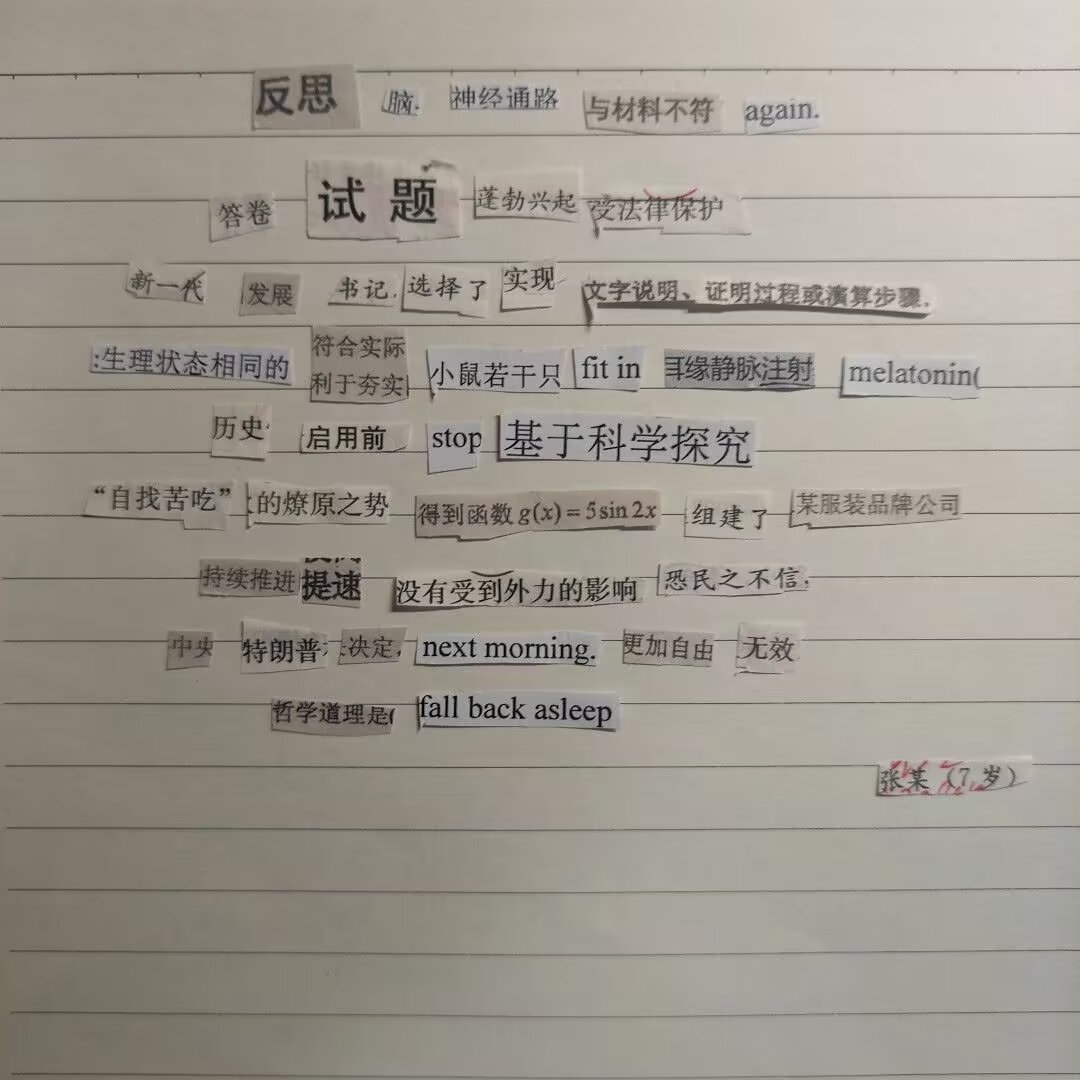 反思 脑. 神经通路 与材料不符 again.
答卷 试题 蓬勃兴起 受法律保护
新一代 发展 书记, 选择了 实现 文字说明、证明过程或演算步骤.
:生理状态相同的 符合实际 利于夯实 小鼠若干只 fit in 耳缘静脉注射 melatonin(
历史 启用前 stop 基于科学探究
“自找苦吃” 的燎原之势 得到函数g(x)=5sin2x 组建了 某服装品牌公司
持续推进 提速 没有受到外力的影响 恐民之不信,
中央 特朗普 决定, next morning. 更加自由 无效
哲学道理是( fall back asleep
张某（7岁）